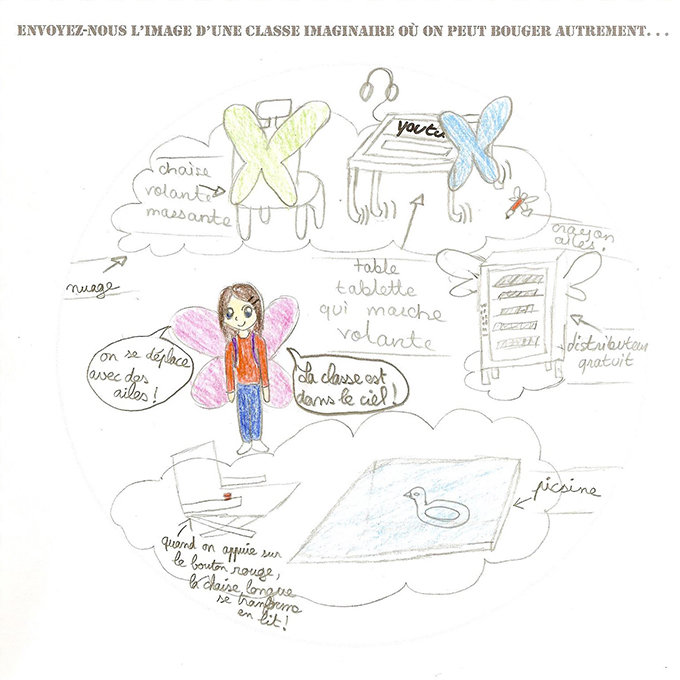 ENVOYEZ-NOUS L'IMAGE D'UNE CLASSE IMAGINAIRE OÙ ON PEUT BOUGER AUTREMENT...
chaise
volante
massante
youtu
crayon
ailes!
nuage
table
tablette
qui marche
volante
distributeur
gratuit
on se déplace
avec des
ailes!
La classe est
dans le ciel!
picsine
quand on appuie sur
le bouton rouge,
la chaise longue
se transforme
en lit!